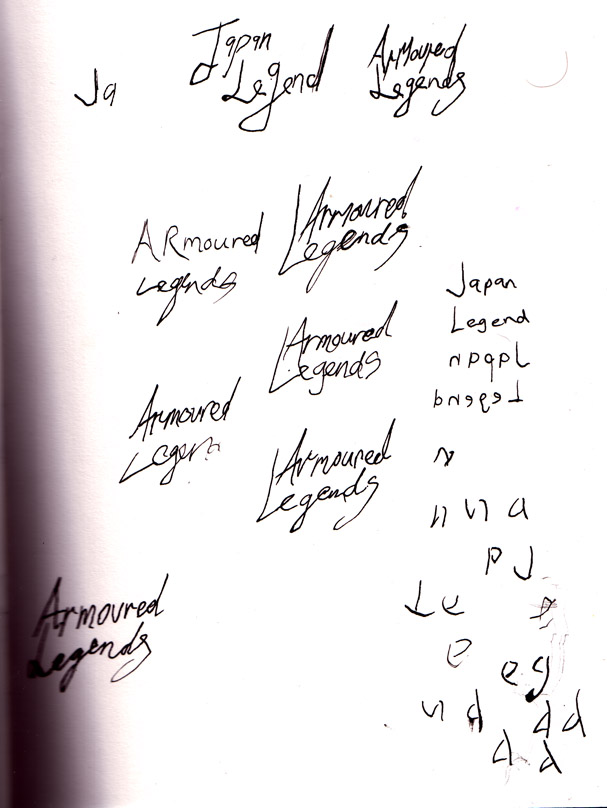 Ja
Japan
Legend
Armoured
Legends
ARmoured
Legends
Armoured
Legends
Armoured
Legends
Japan
Legend
Armoured
Legen
Armoured
Legends
n
n n a
P J
Le
e
e g
n d
d d
d d
Armoured
Legends